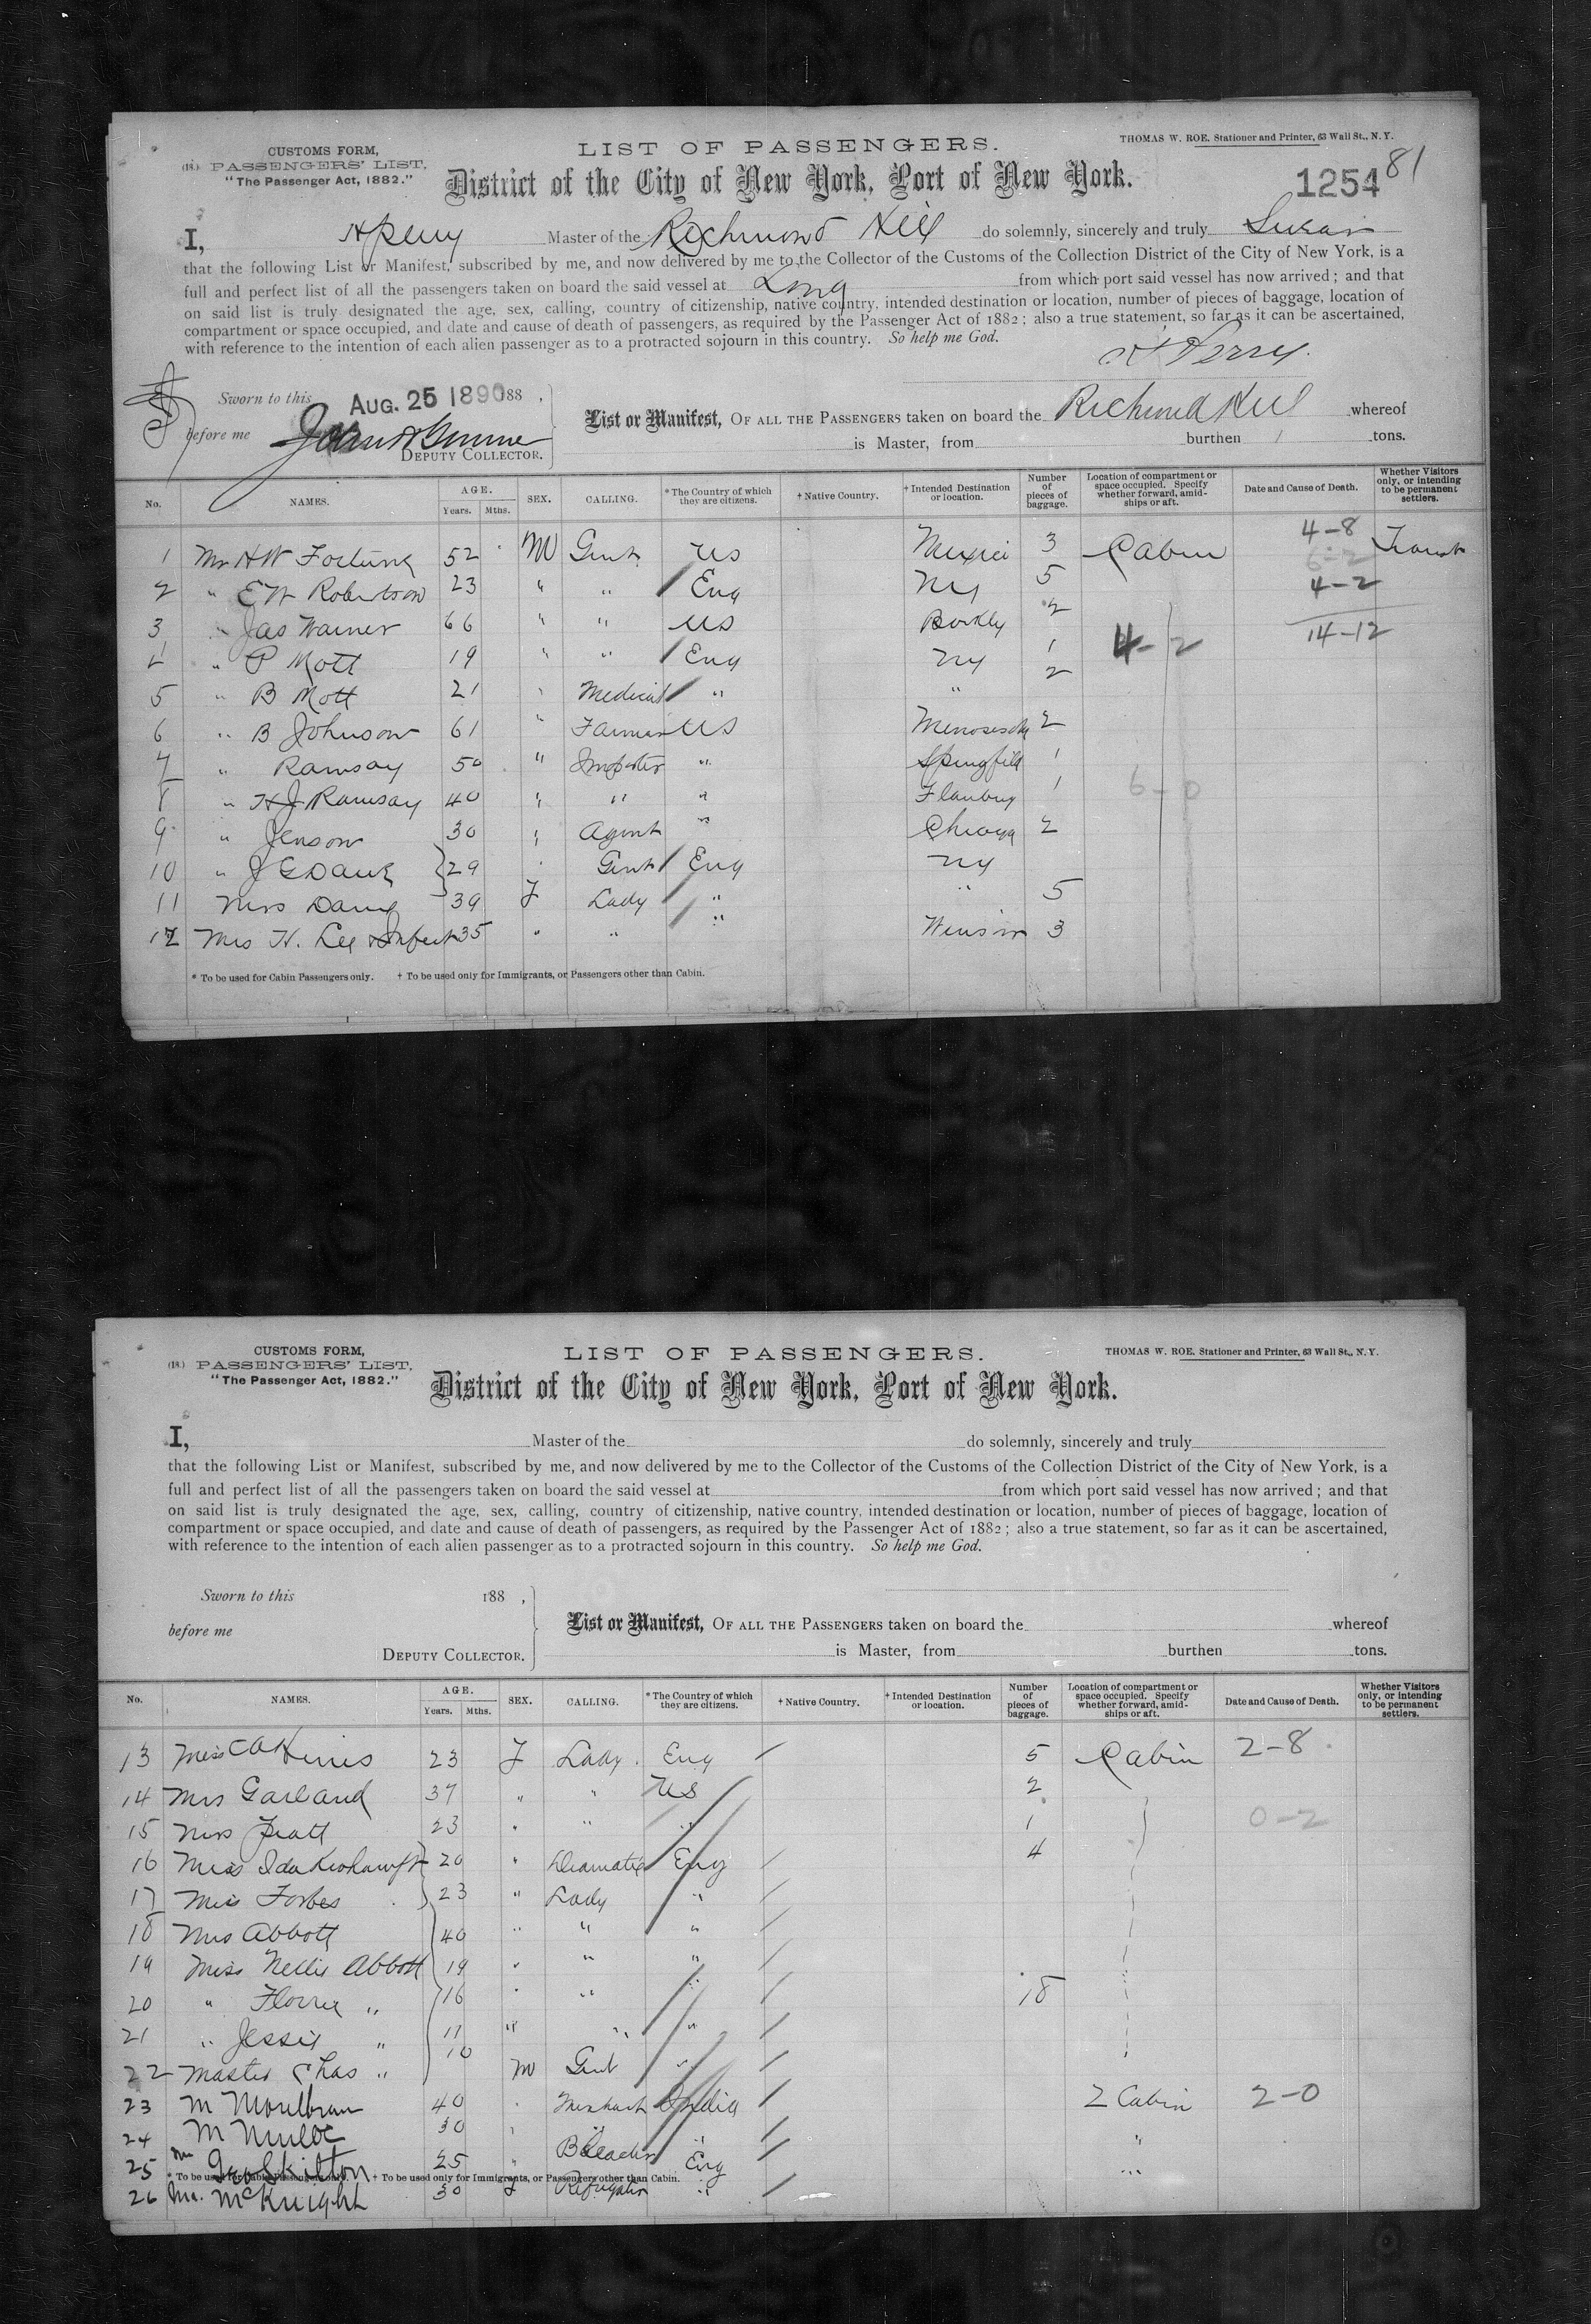 CUSTOMS FORM,
(18.) PASSENGERS' LIST,
"The Passenger Act, 1882."
LIST OF PASSENGERS.
THOMAS W. ROE, Stationer and Printer, 63 Wall St., N. Y.
District of the City of New York, Port of New York.
1254 81
I, H Perry Master of the Richmond Hill do solemnly, sincerely and truly Swear
that the following List or Manifest, subscribed by me, and now delivered by me to the Collector of the Customs of the Collection District of the City of New York, is a
full and perfect list of all the passengers taken on board the said vessel at Long from which port said vessel has now arrived; and that
on said list is truly designated the age, sex, calling, country of citizenship, native country, intended destination or location, number of pieces of baggage, location of
compartment or space occupied, and date and cause of death of passengers, as required by the Passenger Act of 1882; also a true statement, so far as it can be ascertained,
with reference to the intention of each alien passenger as to a protracted sojourn in this country. So help me God.
H Perry.
Sworn to this AUG. 25 1890 188 ,
before me
DEPUTY COLLECTOR.
List or Manifest, OF ALL THE PASSENGERS taken on board the Richmond Hill whereof
is Master, from burthen tons.
No. NAMES. AGE. Years. Mths. SEX. CALLING. * The Country of which they are citizens. † Native Country. † Intended Destination or location. Number of pieces of baggage. Location of compartment or space occupied. Specify whether forward, amidships or aft. Date and Cause of Death. Whether Visitors only, or intending to be permanent settlers.
1 Mr H W Fortune 52 M Gent US Mexico 3 Cabin 4-8 Transit
6-2
2 " E W Robertson 23 " " / Eng NY 5 4-2
3 " Jas Warner 66 " " US 2 14-12
4 " P Mott 19 " " / Eng NY 1 4-2
5 " B Mott 21 " Medical / " " 2
6 " B Johnson 61 " Farmer US 2
7 " Ramsay 50 " Importer " Springfield 1
8 " H J Ramsay 40 " " " 1 6-0
9 " Jenson 30 " Agent " Chicago 2
10 " J G 29 " Gent / Eng NY
11 Mrs 39 F Lady / " " 5
12 Mrs H. Lee & Infant 35 " " / " 3
* To be used for Cabin Passengers only. † To be used only for Immigrants, or Passengers other than Cabin.
CUSTOMS FORM,
(18.) PASSENGERS' LIST,
"The Passenger Act, 1882."
LIST OF PASSENGERS.
THOMAS W. ROE, Stationer and Printer, 63 Wall St., N. Y.
District of the City of New York, Port of New York.
I, Master of the do solemnly, sincerely and truly
that the following List or Manifest, subscribed by me, and now delivered by me to the Collector of the Customs of the Collection District of the City of New York, is a
full and perfect list of all the passengers taken on board the said vessel at from which port said vessel has now arrived; and that
on said list is truly designated the age, sex, calling, country of citizenship, native country, intended destination or location, number of pieces of baggage, location of
compartment or space occupied, and date and cause of death of passengers, as required by the Passenger Act of 1882; also a true statement, so far as it can be ascertained,
with reference to the intention of each alien passenger as to a protracted sojourn in this country. So help me God.
Sworn to this 188 ,
before me
DEPUTY COLLECTOR.
List or Manifest, OF ALL THE PASSENGERS taken on board the whereof
is Master, from burthen tons.
No. NAMES. AGE. Years. Mths. SEX. CALLING. * The Country of which they are citizens. † Native Country. † Intended Destination or location. Number of pieces of baggage. Location of compartment or space occupied. Specify whether forward, amidships or aft. Date and Cause of Death. Whether Visitors only, or intending to be permanent settlers.
13 Miss 23 F Lady Eng / 5 Cabin 2-8
14 Mrs Garland 37 " " US 2
15 Miss Pratt 23 " " " 1 0-2
16 Miss Ida 20 " Dramatic Eng / 4
17 Miss Forbes 23 " Lady " /
18 Mrs Abbott 40 " " " /
19 Miss Nellie Abbott 19 " " " /
20 " Florrie " 16 " " " / 18
21 " Jessie " 11 " " " /
22 Master Chas " 10 M Gent " /
23 M 40 " Merchant India / 2 Cabin 2-0
24 M 30 " " " / "
25 Mr Geo Skilton 25 " Eng / "
* To be used for Cabin Passengers only. † To be used only for Immigrants, or Passengers other than Cabin.
26 McKnight 30 F " /